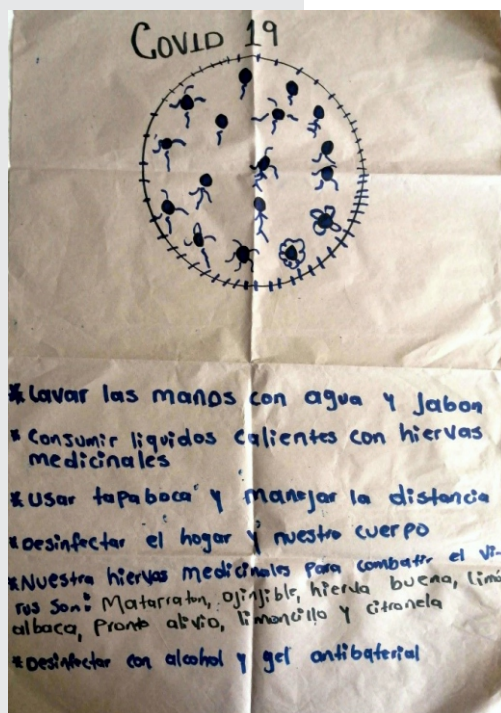 COVID 19
* Lavar las manos con agua y Jabon
* Consumir liquidos calientes con hiervas
medicinales
* Usar tapaboca y manejar la distancia
* Desinfectar el hogar y nuestro cuerpo
* Nuestra hiervas medicinales para combatir el vi-
rus son: Matarraton, Ojinjible, hierva buena, limó
albaca, Pronto alivio, limoncillo y citronela
* Desinfectar con alcohol y gel antibaterial